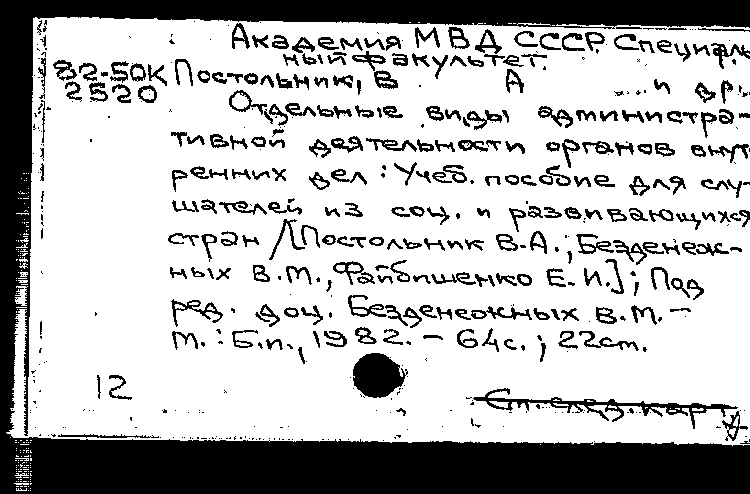 Академия МВД СССР. Специаль
ный факультет.
82-50К Постольник, В А ... и др.
2520 Отдельные виды администра-
тивной деятельности органов внут
ренних дел : Учеб. пособие для слу-
шателей из соц. и развивающихся
стран / [Постольник В.А., Безденеж-
ных В.М., Файбишенко Е.И.] ; Под
ред. доц. Безденежных В.М. –
М. : Б.и., 1982. – 64с. ; 22см.
12
См. след. карт.